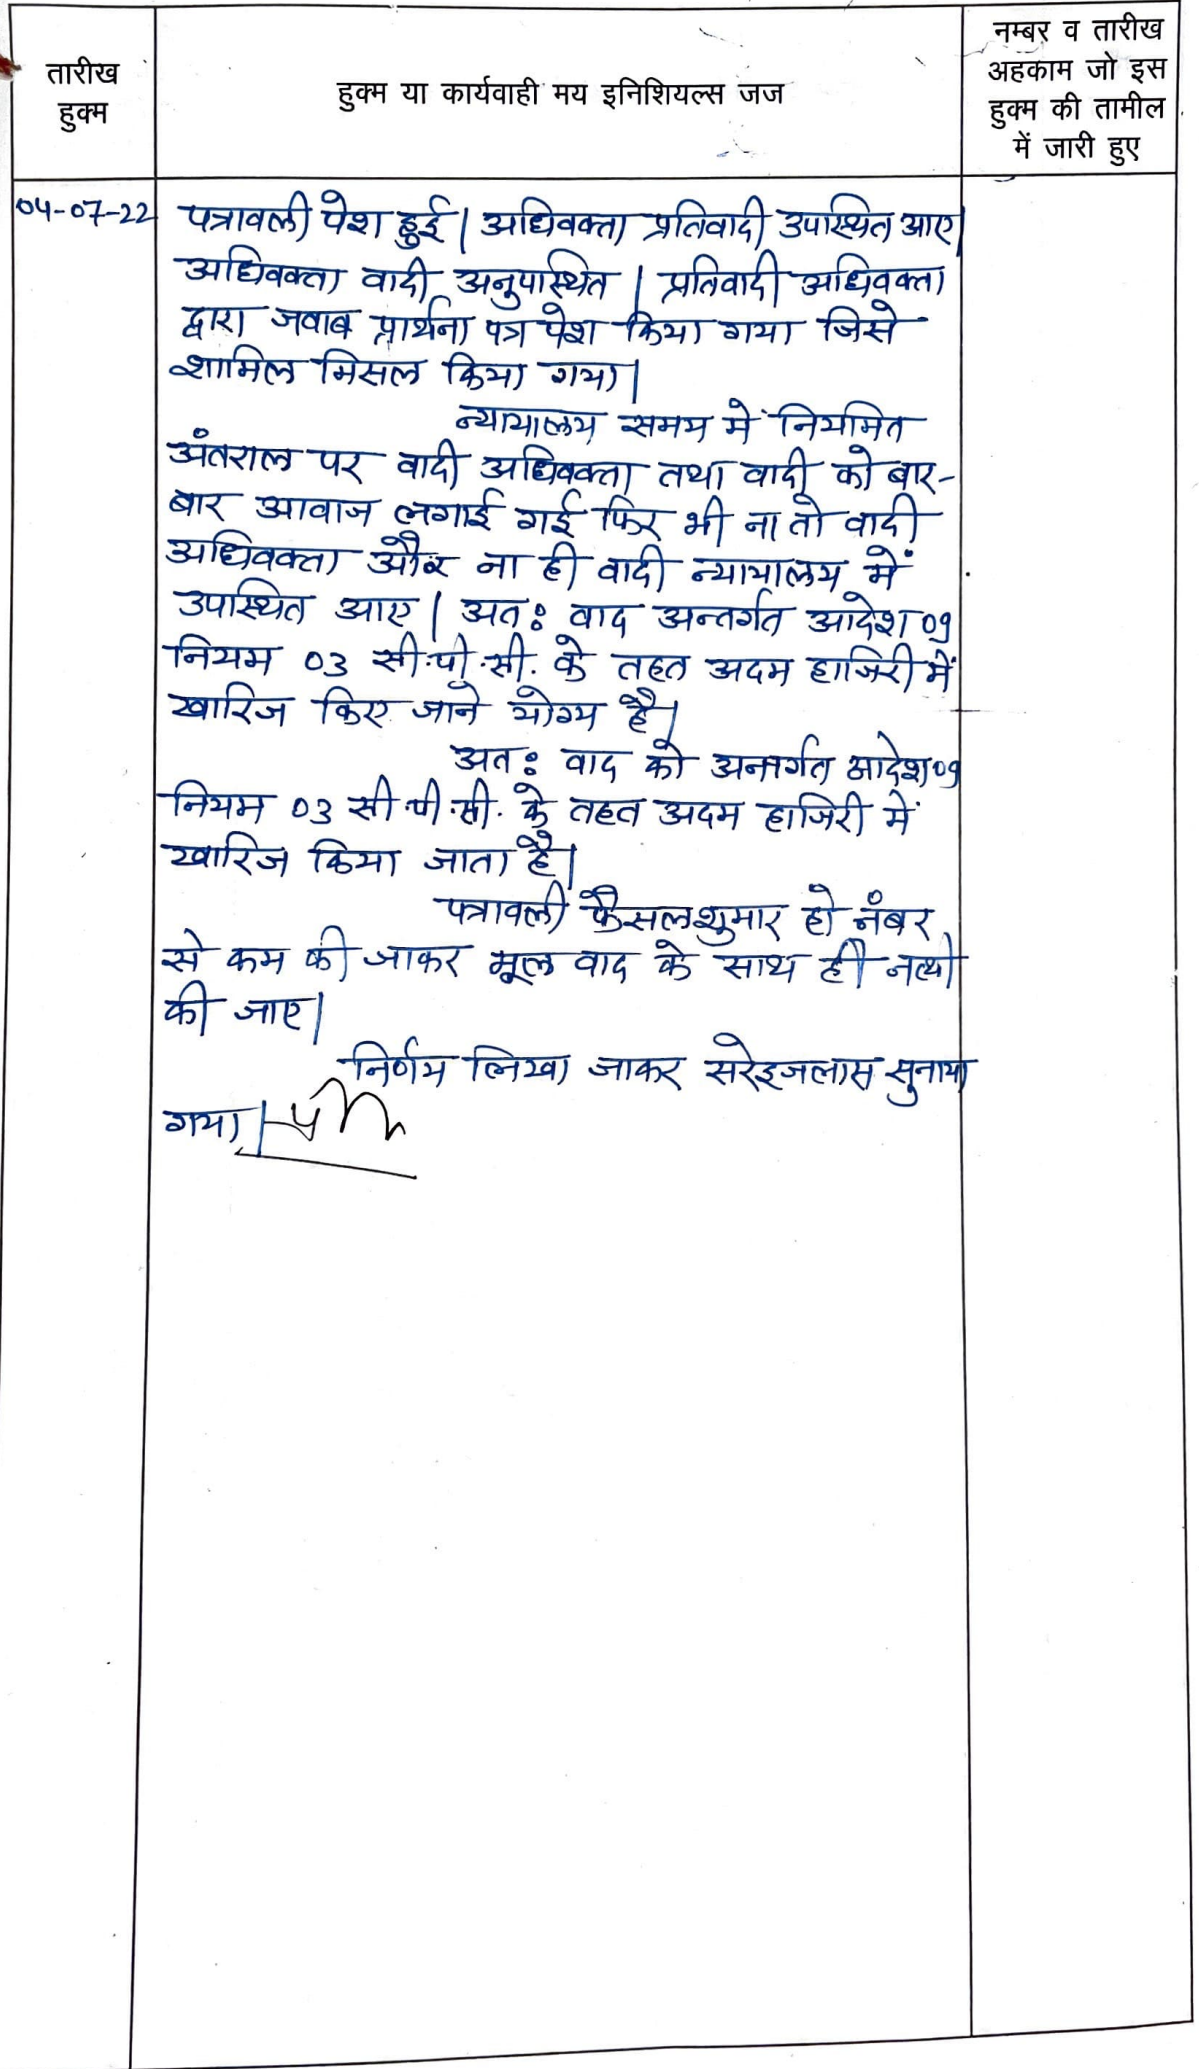 तारीख
हुक्म
हुक्म या कार्यवाही मय इनिशियल्स जज
नम्बर व तारीख
अहकाम जो इस
हुक्म की तामील
में जारी हुए
04-07-22
पत्रावली पेश हुई। अधिवक्ता प्रतिवादी उपस्थित आए।
अधिवक्ता वादी अनुपस्थित। प्रतिवादी अधिवक्ता
द्वारा जवाब प्रार्थना पत्र पेश किया गया जिसे
शामिल मिसल किया गया।
न्यायालय समय में नियमित
अंतराल पर वादी अधिवक्ता तथा वादी को बार-
बार आवाज लगाई गई फिर भी ना तो वादी
अधिवक्ता और ना ही वादी न्यायालय में
उपस्थित आए। अतः वाद अन्तर्गत आदेश 09
नियम 03 सी.पी.सी. के तहत अदम हाजिरी में
खारिज किए जाने योग्य है।
अतः वाद को अन्तर्गत आदेश 09
नियम 03 सी.पी.सी. के तहत अदम हाजिरी में
खारिज किया जाता है।
पत्रावली फैसलशुमार हो नंबर
से कम की जाकर मूल वाद के साथ ही नत्थी
की जाए।
निर्णय लिखा जाकर सरेइजलास सुनाया
गया।